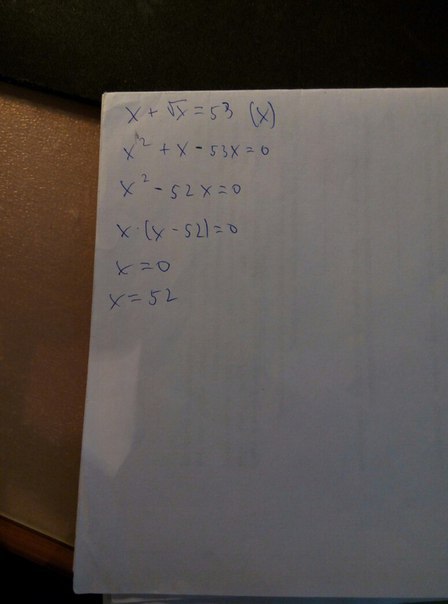 x + √x = 53 (x)
x² + x - 53x = 0
x² - 52x = 0
x · (x - 52) = 0
x = 0
x = 52